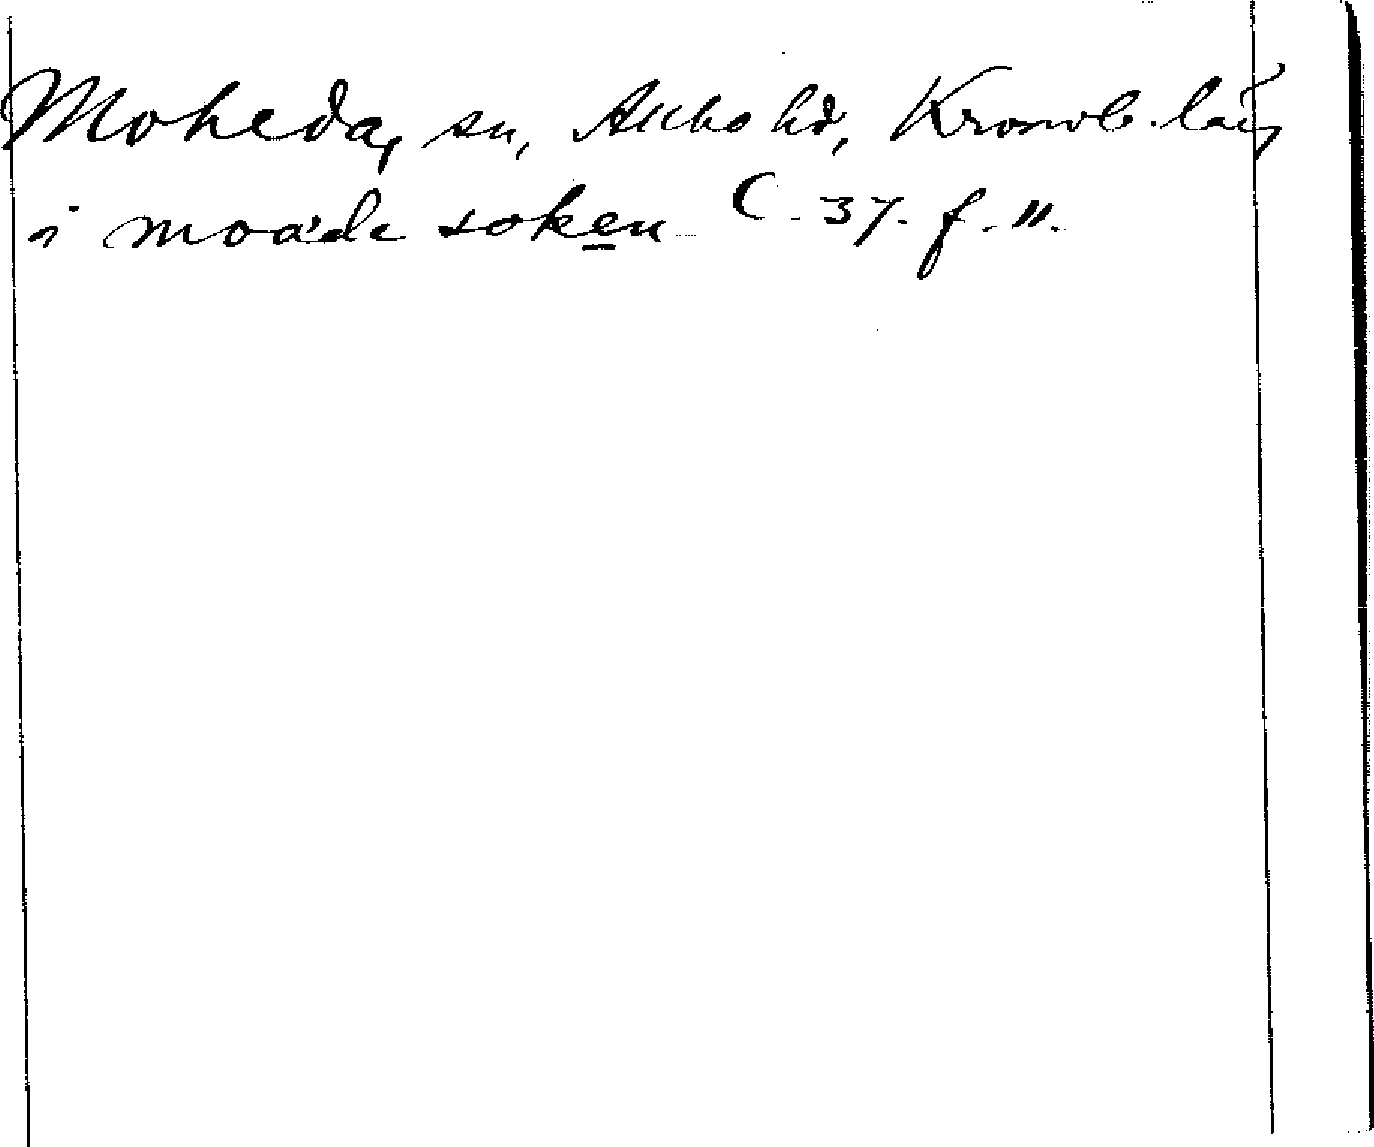 Moheda, sn, Allbo hd, Kronob. län,
i moáda soken C. 37. f. 11.